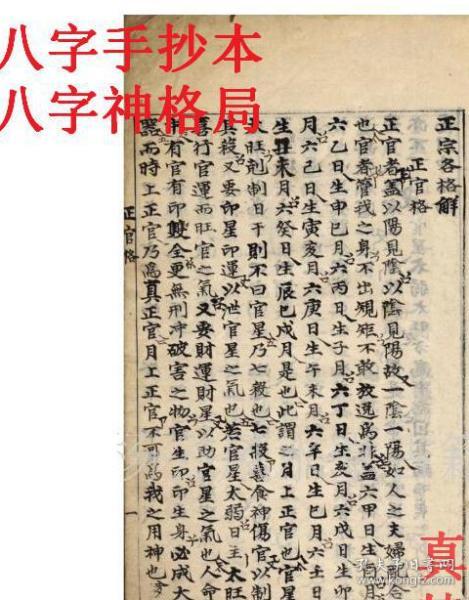 八字手抄本
八字神格局
正宗各格解
正官格
正官者盖以陽見陰以陰見陽故一陰一陽如人之夫婦配合
也官者管我之身不出規矩不敢放逸為非蓋六甲日生酉月
六乙日生申巳月六丙日生子月六丁日生亥月六戊日生卯
月六己日生寅亥月六庚日生午未月六辛日生巳月六壬日
生丑未月六癸日生辰巳戌月是也此謂之月上正官也官星
太旺剋制日干則不曰官星乃七殺也七殺喜食神傷官以制
其殺又要印星印運以世官星之氣也若官星太弱日主太旺
喜行官運而旺官之氣又要財運財星以助官星之氣也人命
中有官有印雙全更無刑冲破害之物官生印印生身必成大
器而時上正官乃為真正官月上正官不可為我之用神也
正官格
一
真